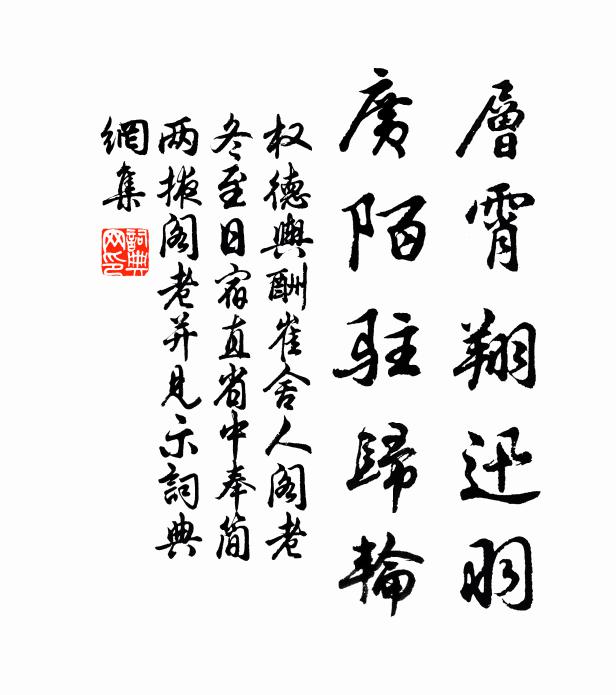 層霄翔迅羽
廣陌駐歸輪
权德輿酬崔舍人阁老
冬至日宿直省中奉简
两掖阁老并见示詞典
網集
詞典
网印